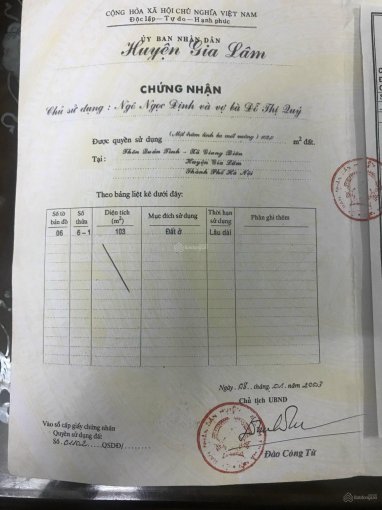 CỘNG HÒA XÃ HỘI CHỦ NGHĨA VIỆT NAM
Độc lập - Tự do - Hạnh phúc
ỦY BAN NHÂN DÂN
Huyện Gia Lâm
CHỨNG NHẬN
Chủ sử dụng : Ngô Ngọc Định và vợ bà Đỗ Thị Quý
Được quyền sử dụng (Một trăm linh ba mét vuông) m² đất.
Thôn Quán Tình - Xã Giang Biên
Tại : Huyện Gia Lâm
Thành Phố Hà Nội
Theo bảng liệt kê dưới đây:
Số tờ bản đồ Số thửa Diện tích (m²) Mục đích sử dụng Thời hạn sử dụng Phần ghi thêm
06 6-1 103 Đất ở Lâu dài
Ngày 08 tháng 01 năm 2003
Chủ tịch UBND
Vào sổ cấp giấy chứng nhận
Quyền sử dụng đất
Số QSDĐ/
Đào Công Từ